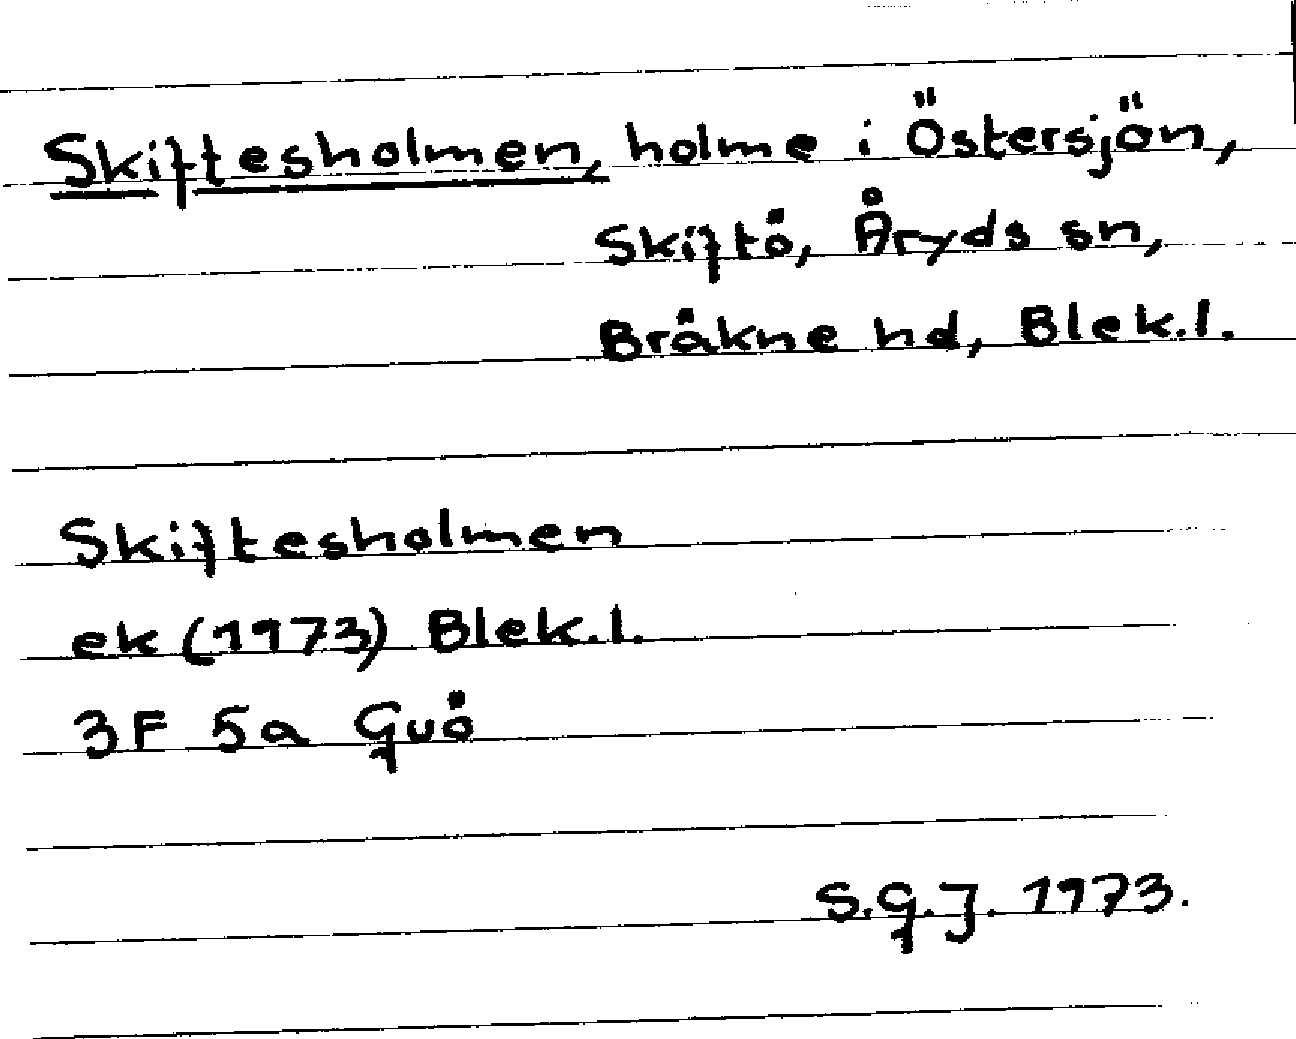 Skiftesholmen, holme i Östersjön,
Skiftö, Åryds sn,
Bräkne hd, Blek.l.
Skiftesholmen
ek (1973) Blek.l.
3F 5a Guö
S.G.J. 1973.